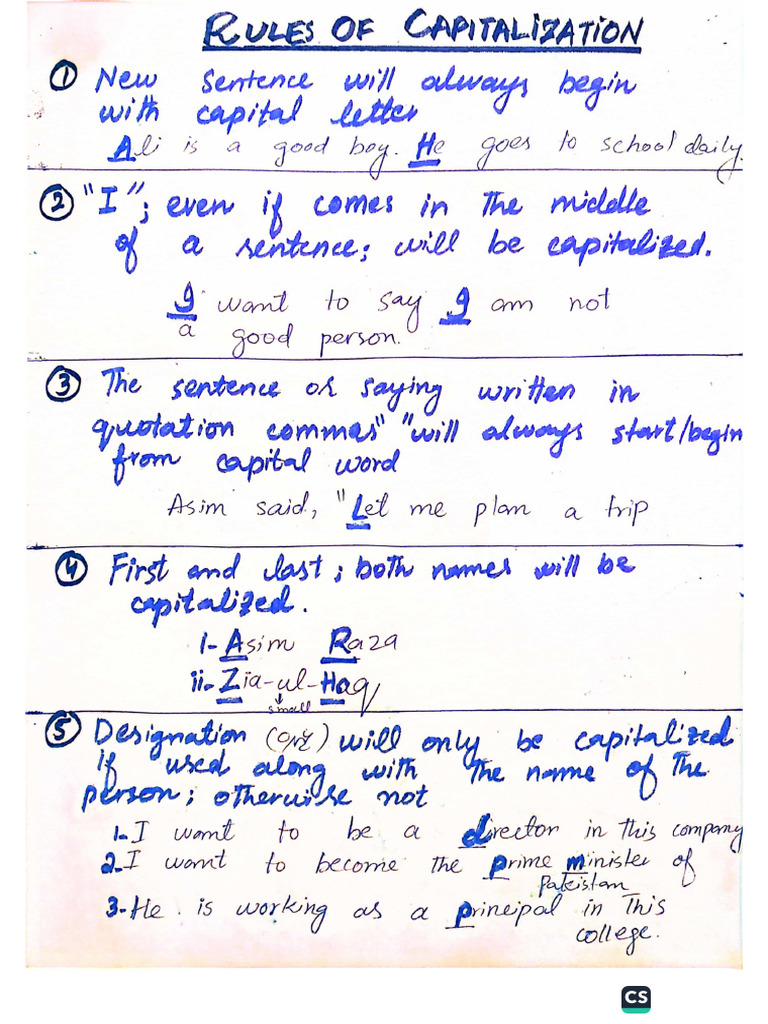 RULES OF CAPITALIZATION
① New sentence will always begin
with capital letter
Ali is a good boy. He goes to school daily.
② "I"; even if comes in the middle
of a sentence; will be capitalized.
I want to say I am not
a good person.
③ The sentence or saying written in
quotation commas" "will always start/begin
from capital word
Asim said, "Let me plan a trip
④ First and last; both names will be
capitalized.
i- Asim Raza
ii- Zia-ul-Haq
small
⑤ Designation (عہدہ) will only be capitalized
if used along with the name of the
person; otherwise not
1- I want to be a director in this company
2- I want to become the prime minister of
Pakistan
3- He is working as a principal in this
college.
CS